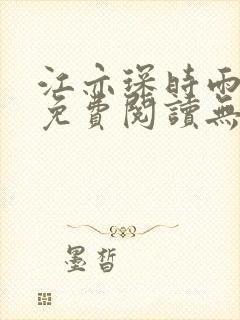 江亦琛时雨
免費閱讀無
墨皙